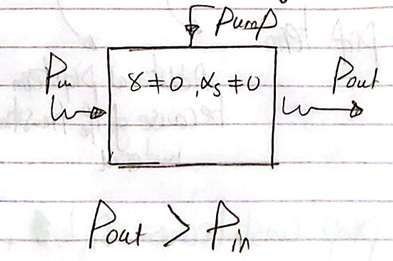 Pump
Pin
γ ≠ 0, αs ≠ 0
Pout
Pout > Pin